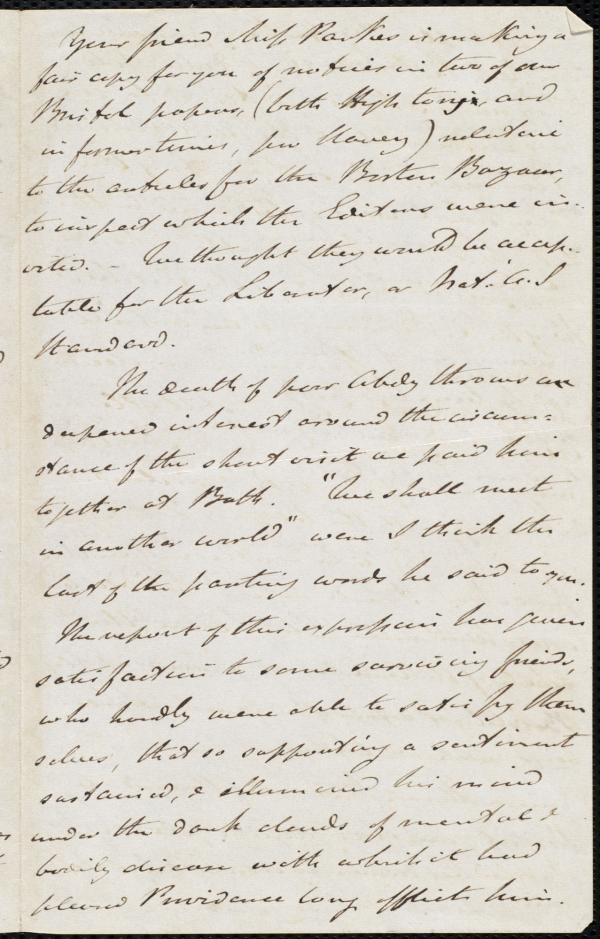 Your friend Miss Parkes is making a
fair copy for you of notices in two of our
Bristol papers, (both High tory, and
in former times, pro slavery) relative
to the articles for the Boston Bazaar,
to inspect which the Editors were in-
vited. - We thought they would be accep-
table for the Liberator, or Nat. A. S
Standard.
The death of poor Abdy throws a
deepened interest around the circum=
stance of the short visit we paid him
together at Bath. "We shall meet
in another world" were I think the
last of the parting words he said to you.
The report of this expression has given
satisfaction to some surviving friends,
who hardly were able to satisfy them
selves, that so supporting a sentiment
sustained, & illumined his mind
under the dark clouds of mental &
bodily disease with which it had
pleased Providence long afflict him.